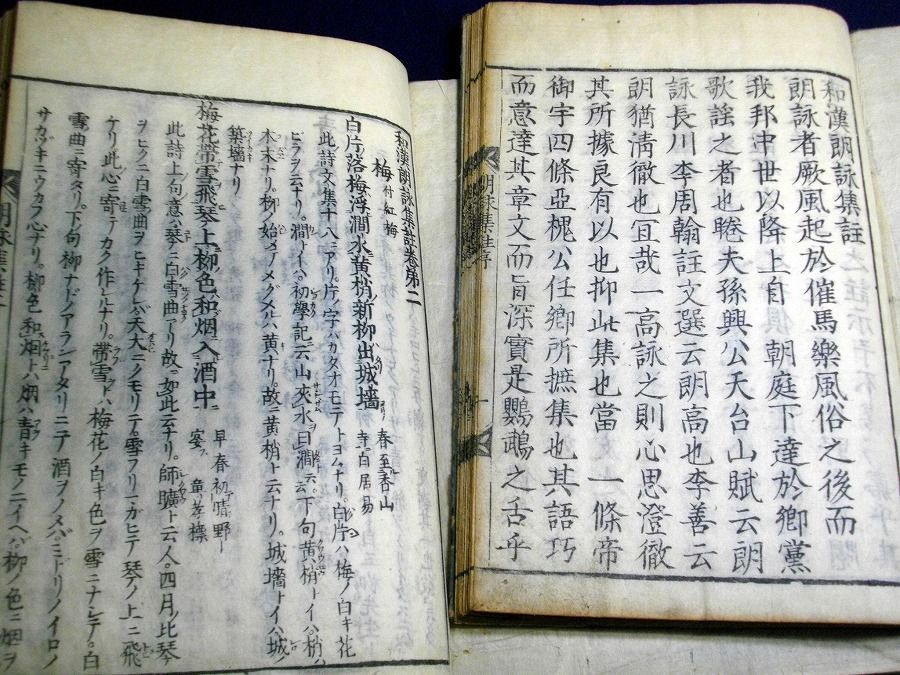 和漢朗詠集註
朗詠者厥風起於催馬樂風俗之後而
我邦中世以降上自　朝庭下達於鄉黨
歌謡之者也睠夫孫興公天台山賦云朗
詠長川李周翰註文選云朗高也李善云
朗猶清徹也宜哉一高詠之則心思澄徹
其所據良有以也抑此集也當　一條帝
御宇四條亞槐公任卿所摭集也其語巧
而意達其章文而旨深實是鸚鵡之舌乎
朗詠集註序
和漢朗詠集註卷第二
梅 付紅梅
白片落梅浮澗水黄梢新柳出城墻 春至香山寺 白居易
此詩文集十八ニアリ。片ノ字バカタオモテトヨムナリ。白片ハ梅ノ白キ花
ビラヲ云ナリ。澗トイハ初學記云山夾水曰澗云云。下句黄梢トイハ梢ハ
木末ナリ。柳ノ始テメグメルハ黄ナリ。故ニ黄梢ト云ナリ。城墻トイハ城ノ
築墻ナリ
梅花帶雪飛琴上柳色和烟入酒中 早春初晴野宴 章孝標
此詩上句意ハ琴ニ白雪曲アリ故ニ如此云ナリ。師曠ト云人。四月ノ比琴
ヲヒクニ白雪曲ヲヒキケレバ天大ニクモリテ雪フリ一ガヒテ琴ノ上ニ飛
ケリ此心ニ寄テカク作レルナリ。帶雪トハ梅花ノ白キ色ヲ雪ニナシテ。白
雪曲ニ寄タリ。下句柳ナドノアランアタリニテ酒ヲノメバミドリノイロノ
サカヅキニウカフ心ナリ。柳色和烟トハ烟ハ青キモノニイヘバ柳ノ色ニ烟ヲ